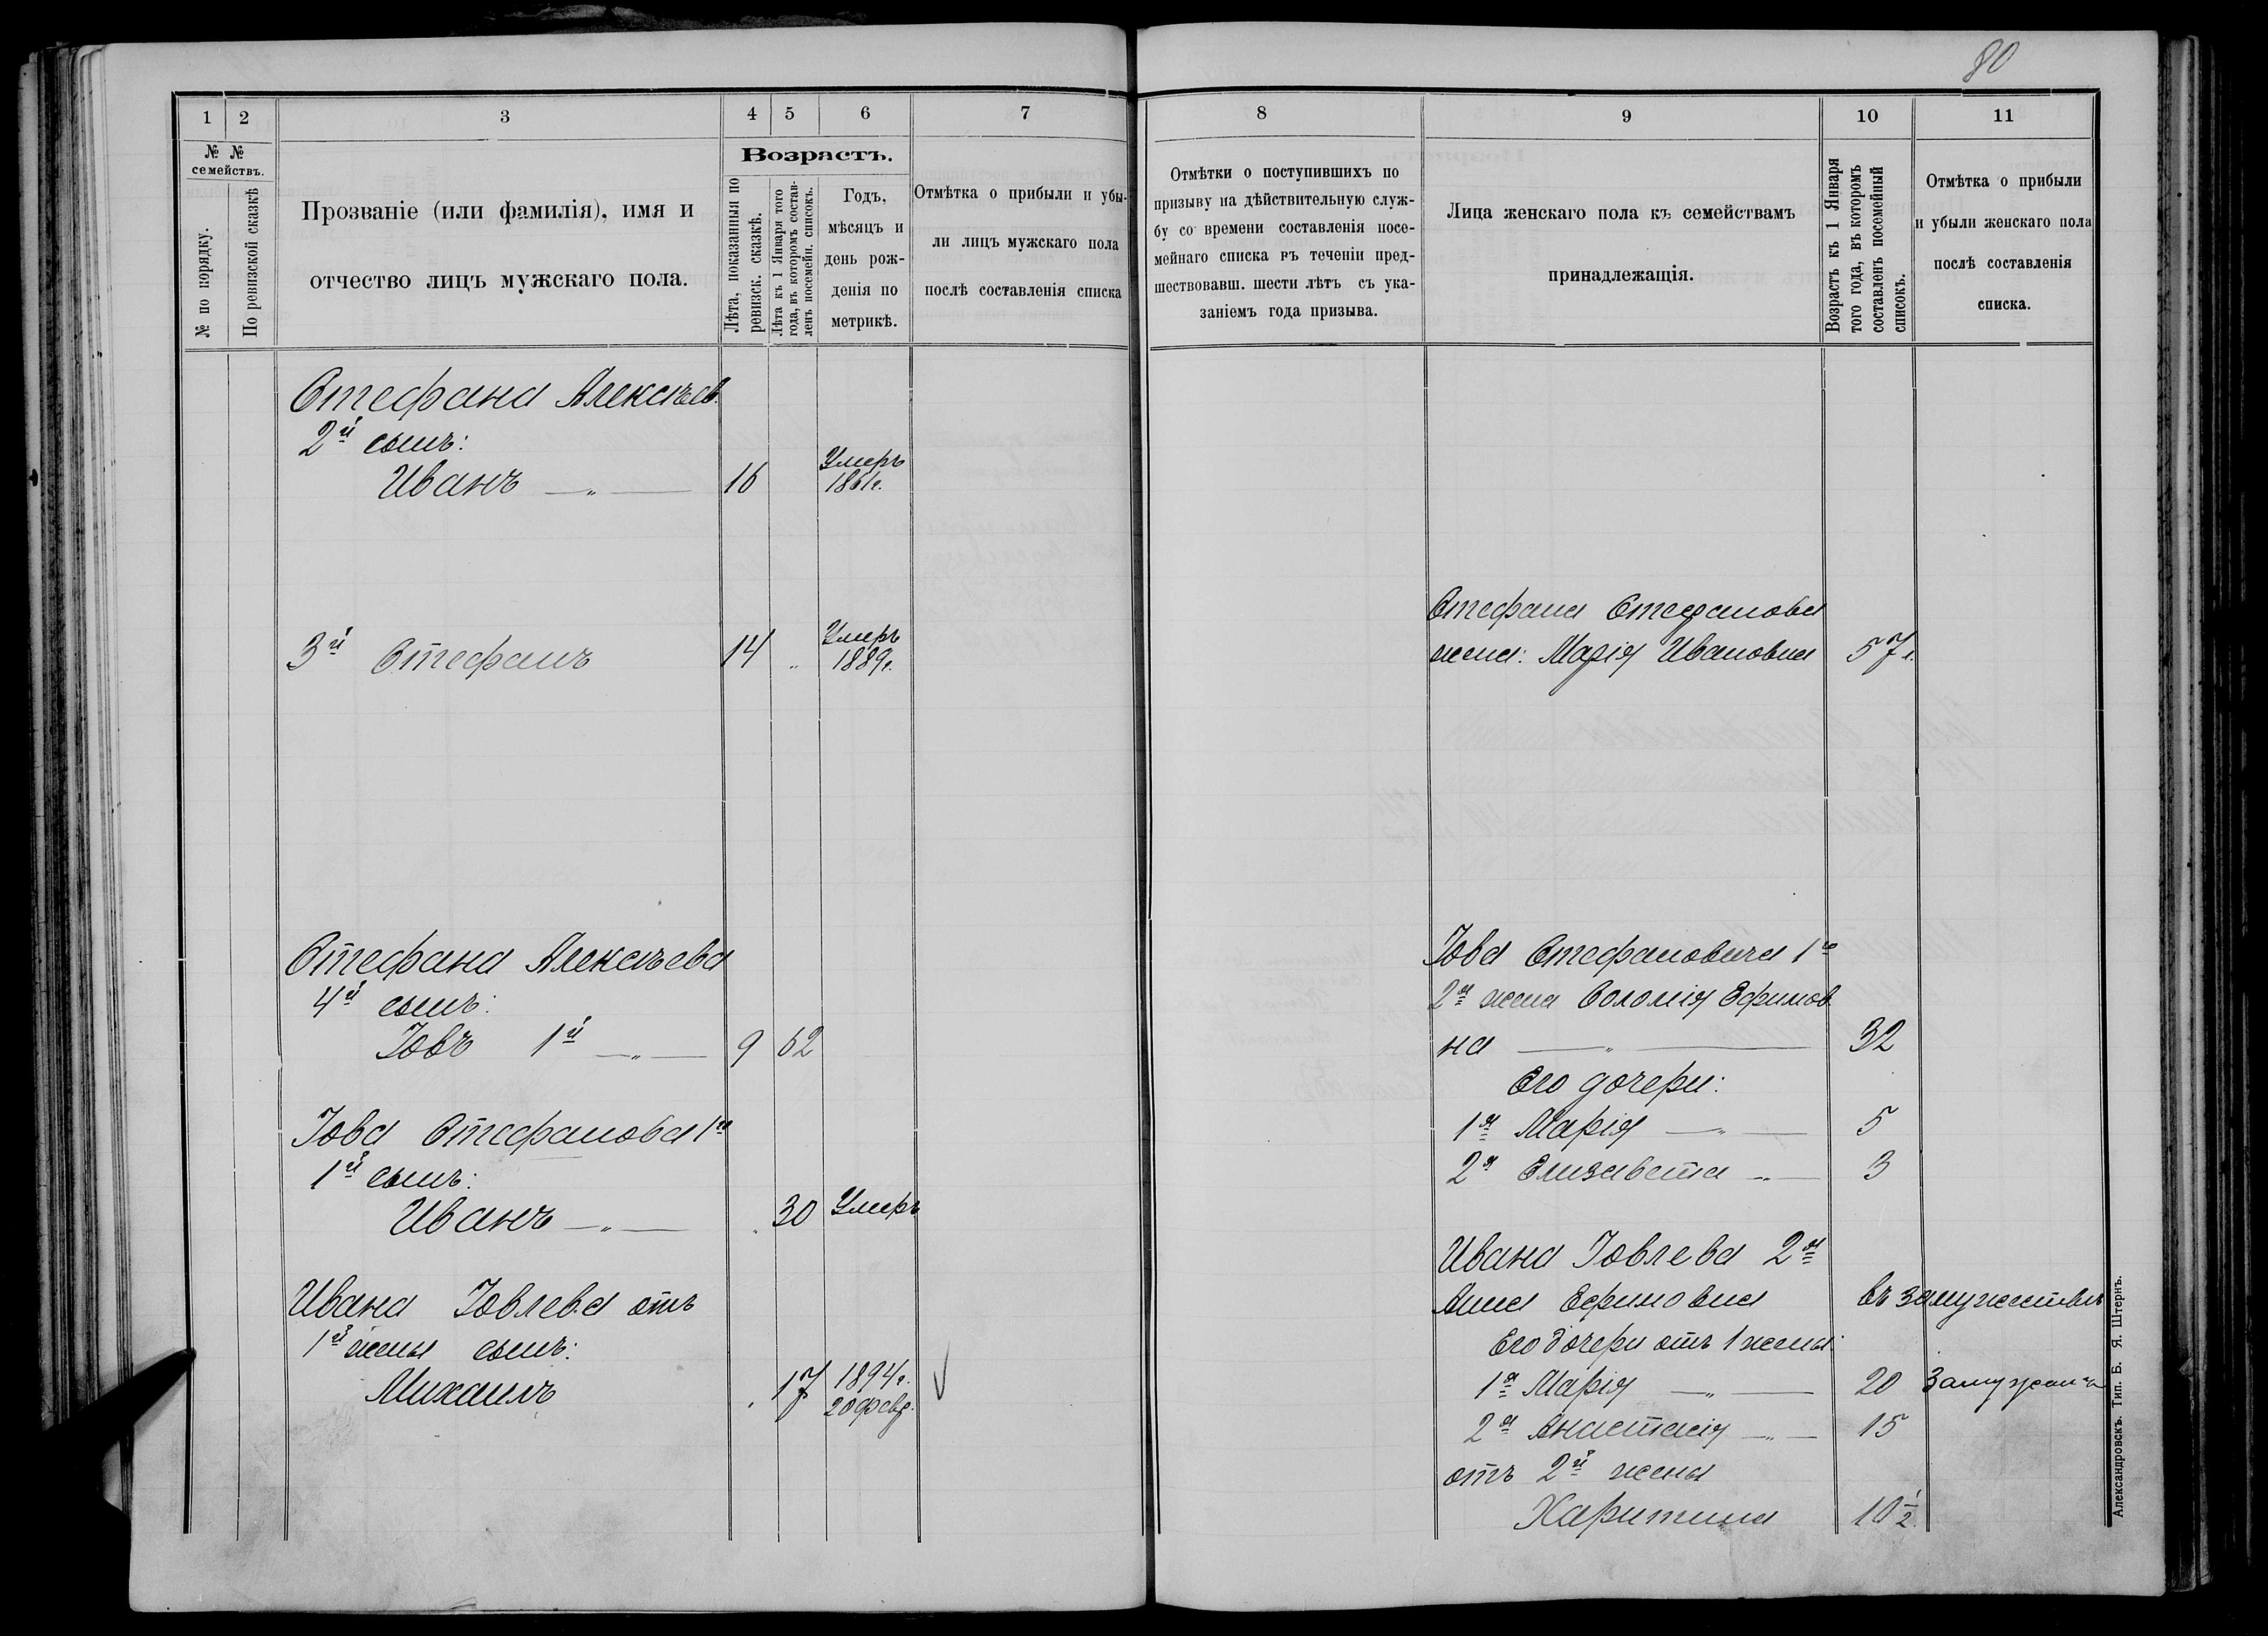 80
1 2 3 4 5 6 7
№ №
семействъ.
№ по порядку.
По ревизской сказкѣ
Прозваніе (или фамилія), имя и
отчество лицъ мужскаго пола.
Возрастъ.
Лѣта, показанныя по
ревизск. сказкѣ.
Лѣта къ 1 Января того
года, въ которомъ состав-
ленъ посемейн. списокъ.
Годъ,
мѣсяцъ и
день рож-
денія по
метрикѣ.
Отмѣтка о прибыли и убы-
ли лицъ мужскаго пола
послѣ составленія списка
Стефана Алексѣев.
2й сынъ:
Иванъ — „ — 16 Умеръ
1861г.
3й Стефанъ 14 „ Умеръ
1889г.
Стефана Алексѣева
4й сынъ:
Іовъ 1й — „ — 9 62
Іова Стефанова 1го
1й сынъ:
Иванъ — „ — „ 30 Умеръ
Ивана Іовлева отъ
1й жены сынъ:
Михаилъ „ 17 1894г.
20 февр.
8 9 10 11
Отмѣтки о поступившихъ по
призыву на дѣйствительную служ-
бу со времени составленія посе-
мейнаго списка въ теченіи пред-
шествовавш. шести лѣтъ съ ука-
заніемъ года призыва.
Лица женскаго пола къ семействамъ
принадлежащія.
Возрастъ къ 1 Января
того года, въ которомъ
составленъ посемейный
списокъ.
Отмѣтка о прибыли
и убыли женскаго пола
послѣ составленія
списка.
Стефана Стефанова
жена: Марія Ивановна 57 г.
Іова Стефановича 1го
2я жена Соломія Ефимов
на — „ — 32
Его дочери:
1я Марія — „ — 5
2я Елизавета — „ — 3
Ивана Іовлева 2я
Анна Ефимовна въ замужествѣ
Его дочери отъ 1 жены:
1я Марія — „ — 20 Замужемъ
2я Анастасія — „ — 15
отъ 2й жены
Харитина 10 1/2
Александровскъ. Тип. Б. Я. Штернъ.